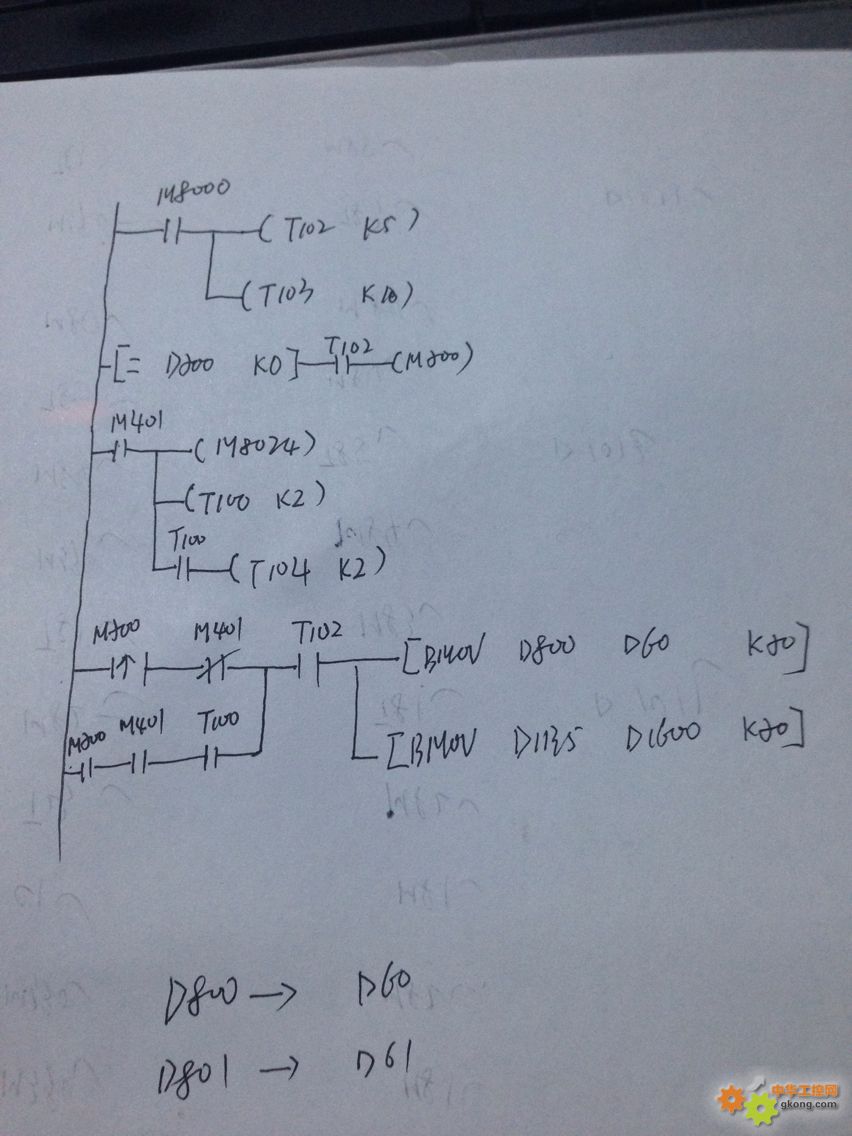 M8000
( T102 K5 )
( T103 K10 )
[ = D200 K0 ] T102 ( M200 )
M401
( M8024 )
( T100 K2 )
T100 ( T104 K2 )
M200 M401 T102 [ BMOV D800 D60 K20 ]
M200 M401 T100 [ BMOV D1135 D1600 K20 ]
D800 → D60
D801 → D61
中华工控网
gkong.com